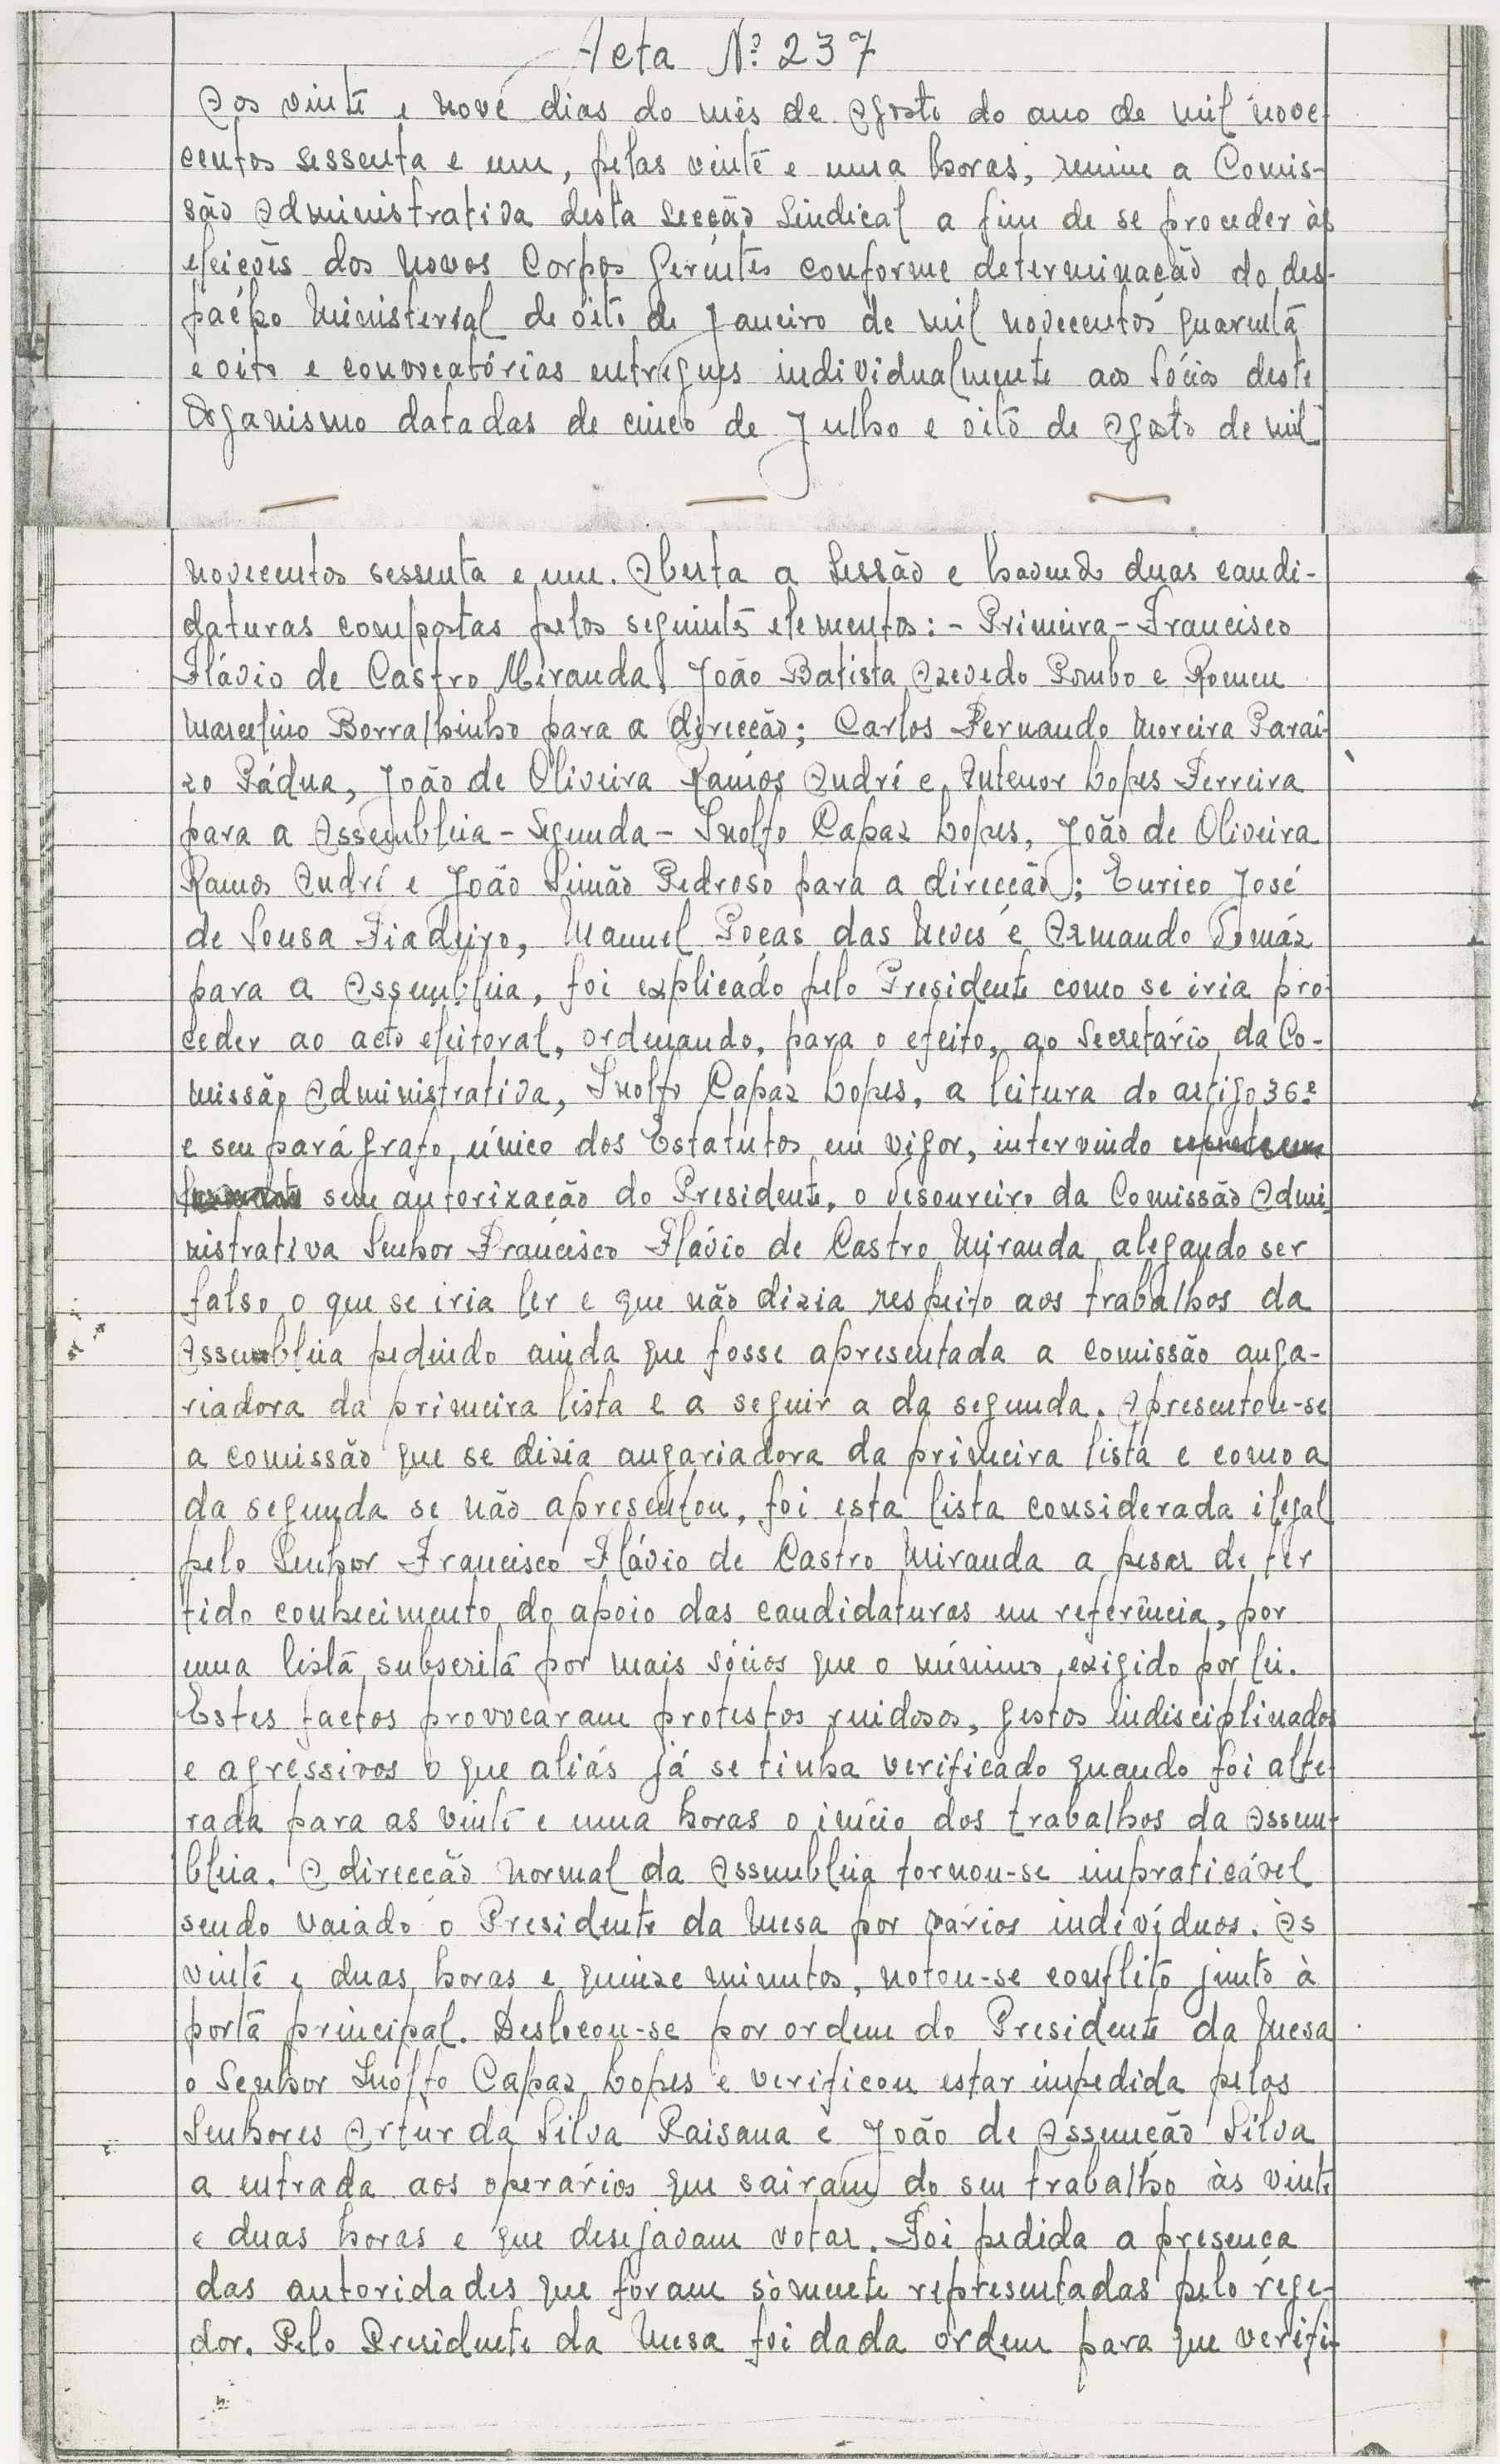 Acta Nº 237
Aos vinte e nove dias do mês de Agosto do ano de mil nove
centos sessenta e um, pelas vinte e uma horas, reuniu a Comis-
são Administrativa desta Secção Sindical a fim de se proceder às
eleições dos novos Corpos Gerentes conforme determinação do des-
pacho Ministerial de oito de Janeiro de mil novecentos quarenta
e oito e convocatórias entregues individualmente aos Sócios deste
Organismo datadas de cinco de Julho e oito de Agosto de mil
novecentos sessenta e um. Aberta a Sessão e havendo duas candi-
daturas compostas pelos seguintes elementos: - Primeira - Francisco
Flávio de Castro Miranda, João Batista Azevedo Pombo e Romeu
Marcelino Borralhinho para a direcção; Carlos Fernando Moreira Paraí-
zo Pádua, João de Oliveira Ramos André e Antenor Lopes Ferreira
para a Assembleia - Segunda - Inolfo Capaz Lopes, João de Oliveira
Ramos André e João Simão Pedroso para a direcção; Eurico José
de Sousa Fiadeiro, Manuel Poças das Neves e Armando Tomáz
para a Assembleia, foi explicado pelo Presidente como se iria pro-
ceder ao acto eleitoral, ordenando, para o efeito, ao Secretário da Co-
missão Administrativa, Inolfo Capaz Lopes, a leitura do artigo 36º
e seu parágrafo único dos Estatutos em vigor, intervindo
sem autorização do Presidente, o tesoureiro da Comissão Admi-
nistrativa Senhor Francisco Flávio de Castro Miranda alegando ser
falso o que se iria ler e que não dizia respeito aos trabalhos da
Assembleia pedindo ainda que fosse apresentada a comissão anga-
riadora da primeira lista e a seguir a da segunda. Apresentou-se
a comissão que se dizia angariadora da primeira lista e como a
da segunda se não apresentou, foi esta lista considerada ilegal
pelo Senhor Francisco Flávio de Castro Miranda a pesar de ter
tido conhecimento do apoio das candidaturas em referência, por
uma lista subscrita por mais sócios que o mínimo exigido por lei.
Estes factos provocaram protestos ruidosos, gestos indisciplinados
e agressivos o que aliás já se tinha verificado quando foi alte-
rada para as vinte e uma horas o início dos trabalhos da Assem-
bleia. A direcção normal da Assembleia tornou-se impraticável
sendo vaiado o Presidente da Mesa por vários indivíduos. Às
vinte e duas horas e quinze minutos, notou-se conflito junto à
porta principal. Deslocou-se por ordem do Presidente da Mesa
o Senhor Inolfo Capaz Lopes e verificou estar impedida pelos
Senhores Artur da Silva Raisana e João de Assunção Silva
a entrada aos operários que sairam do seu trabalho às vinte
e duas horas e que desejavam votar. Foi pedida a presença
das autoridades que foram sòmente representadas pelo rege-
dor. Pelo Presidente da Mesa foi dada ordem para que verifi-